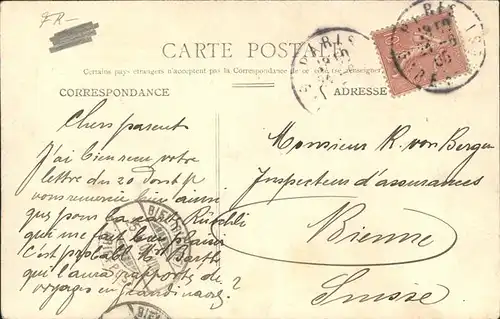 FR-
CARTE POSTALE
Certains pays étrangers n'acceptent pas la Correspondance de ce côté
CORRESPONDANCE
ADRESSE
PARIS
PARIS
Chers parents
J'ai bien reçu votre
lettre du 20 dont je
vous remercie bien ainsi
que pour la carte
qui me fait bien plaisir
C'est probabl Mr Barth
qui l'aura rapportée de
voyages en Scandinavie?
Monsieur R. von Bergen
Inspecteur d'assurances
Bienne
Suisse